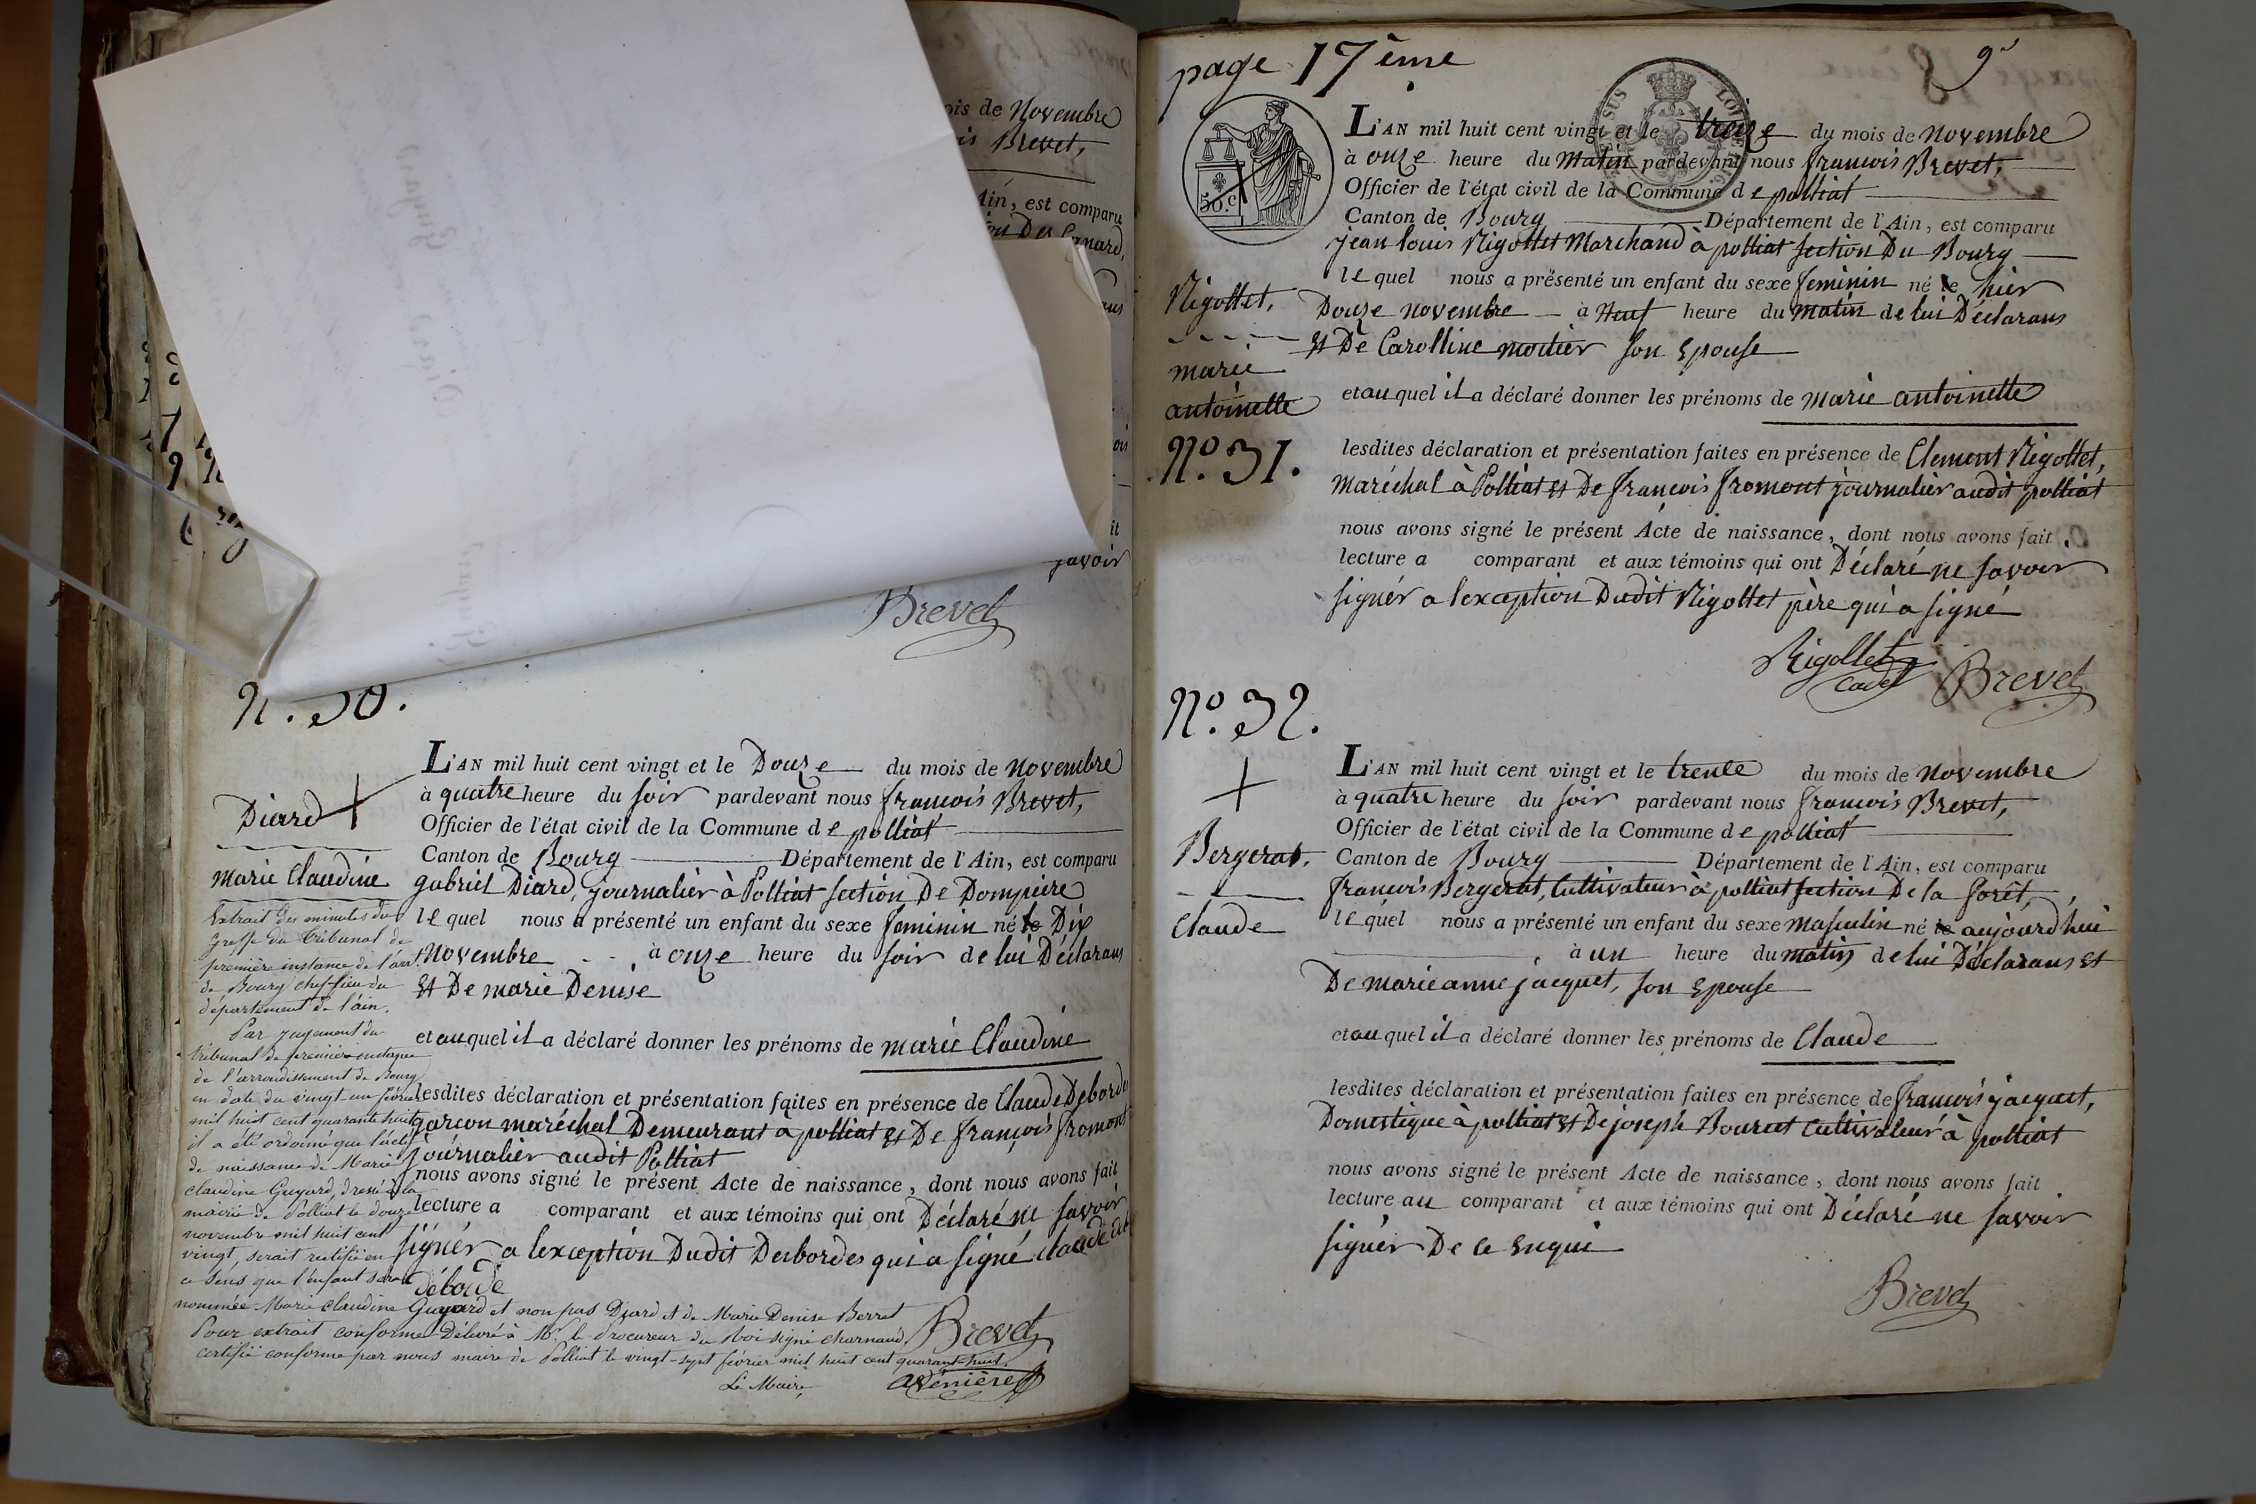 ois de Novembre
is Brevet,
Ain, est comparu
Des Canard,
savoir
Brevet
N.° 30.
Diard
marie Claudine
L'AN mil huit cent vingt et le Douze du mois de Novembre
à quatre heure du soir pardevant nous françois Brevet,
Officier de l'état civil de la Commune de polliat
Canton de Bourg Département de l'Ain, est comparu
gabriel Diard, journalier à Polliat section De Dompiere
le quel nous a présenté un enfant du sexe feminin né le Dix
Novembre à onze heure du soir de lui Déclarans
Et De marie Denise
et au quel il a déclaré donner les prénoms de marie Claudine
lesdites déclaration et présentation faites en présence de Claude Deborde
garcon maréchal Demeurant a polliat et De françois fromont
journalier audit Polliat
nous avons signé le présent Acte de naissance, dont nous avons fait
lecture a comparant et aux témoins qui ont Déclaré ne savoir
signér a lexception Dudit Desbordes qui a signé claude
déborde
Brevet
Extrait des minutes du
greffe du tribunal de
première instance de l'arr.
de Bourg chef-lieu du
département de l'ain.
Par jugement du
tribunal de première instance
de l'arrondissement de Bourg
en date du vingt un février
mil huit cent quarante huit
il a été ordonné que l'acte
de naissance de Marie
claudine Guyard, dressé à la
mairie de Polliat le douze
novembre mil huit cent
vingt, serait rectifié en
ce sens que l'enfant sera
nommée Marie claudine Guyard et non pas Diard et de Marie Denise Berret
Pour extrait conforme Délivré à Mr. le Procureur du Roi signé charnaud
certifié conforme par nous maire de Polliat le vingt-sept février mil huit cent quarante-huit.
Le Maire
page 17ème
9e
50.c
L'AN mil huit cent vingt et le treize du mois de novembre
à onze heure du matin pardevant nous françois Brevet,
Officier de l'état civil de la Commune de polliat
Canton de Bourg Département de l'Ain, est comparu
jean louis Rigollet Marchand à polliat section Du Bourg
le quel nous a présenté un enfant du sexe feminin né le hier
Douze novembre à Neuf heure du matin de lui Déclarans
Et De Carolline moitier son Epouse
et au quel il a déclaré donner les prénoms de marie antoinette
Rigollet,
marie
antoinette
N.° 31.
lesdites déclaration et présentation faites en présence de Clement Rigollet,
maréchal à Polliat et De françois fromont journalier audit polliat
nous avons signé le présent Acte de naissance, dont nous avons fait
lecture a comparant et aux témoins qui ont Déclaré ne savoir
signér a lexception Dudit Rigollet père qui a signé
Rigollet
cadet
Brevet
N.° 32.
Bergerat,
Claude
L'AN mil huit cent vingt et le trente du mois de Novembre
à quatre heure du soir pardevant nous françois Brevet,
Officier de l'état civil de la Commune de polliat
Canton de Bourg Département de l'Ain, est comparu
françois Bergerat, Cultivateur à polliat section De la forêt,
le quel nous a présenté un enfant du sexe masculin né le aujourdhui
à un heure du matin de lui Déclarans Et
De marieanne jacquet, son Epouse
et au quel il a déclaré donner les prénoms de Claude
lesdites déclaration et présentation faites en présence de françois jacquet,
Domestique à polliat et De joseph Bouret Cultivateur à polliat
nous avons signé le présent Acte de naissance, dont nous avons fait
lecture au comparant et aux témoins qui ont Déclaré ne savoir
signér De ce Enquis
Brevet